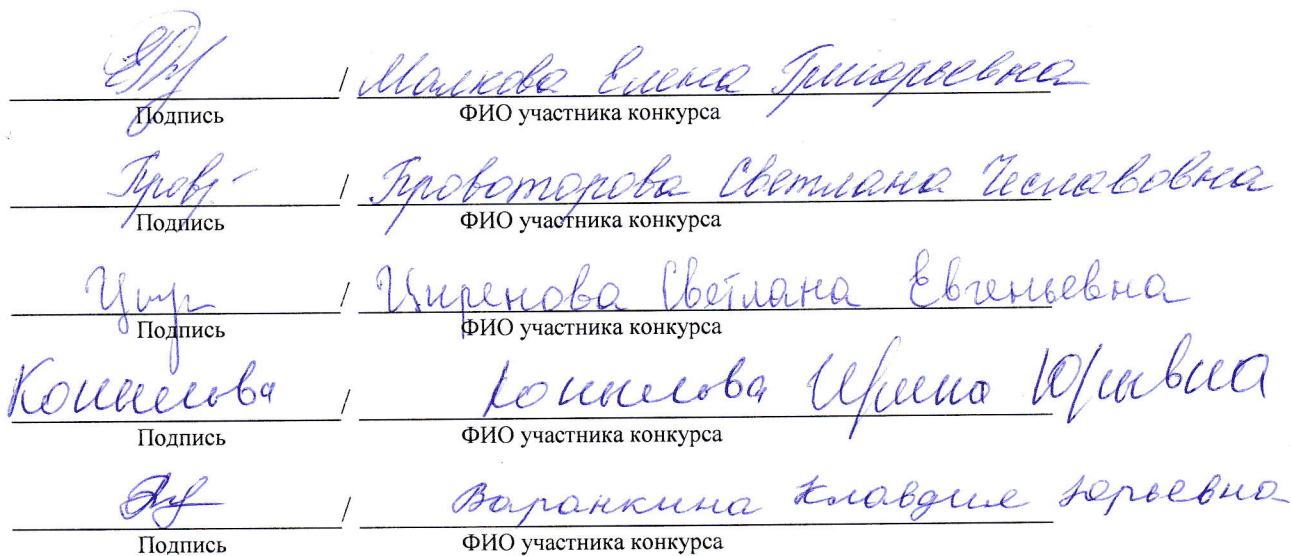 / Малкова Елена Григорьевна
Подпись ФИО участника конкурса
/ Провоторова Светлана Чеславовна
Подпись ФИО участника конкурса
/ Циренова Светлана Евгеньевна
Подпись ФИО участника конкурса
/ Ирина Юрьевна
Подпись ФИО участника конкурса
/ Варанкина Клавдия Юрьевна
Подпись ФИО участника конкурса